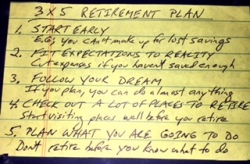 3 X 5 RETIREMENT PLAN
1. START EARLY
you can't make up for lost savings
2. FIT EXPECTATIONS TO REALITY
Cut expenses if you haven't saved enough
3. FOLLOW YOUR DREAM
If you plan, you can do almost anything
4. CHECK OUT A LOT OF PLACES TO RETIRE
Start visiting places well before you retire
5. PLAN WHAT YOU ARE GOING TO DO
Don't retire before you know what to do